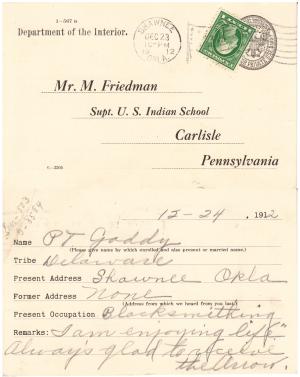 1-507 b
Department of the Interior.
SHAWNEE
DEC 23
12
OKLA.
Mr. M. Friedman
Supt. U. S. Indian School
Carlisle
Pennsylvania
12-24, 1912
Name PT Gaddy
(Please give name by which enrolled and also present or married name.)
Tribe Delaware
Present Address Shawnee Okla
Former Address None
(Address from which we heard from you last.)
Present Occupation Blacksmithing
Remarks: I am enjoying life"
Always glad to receive
the Arrow.